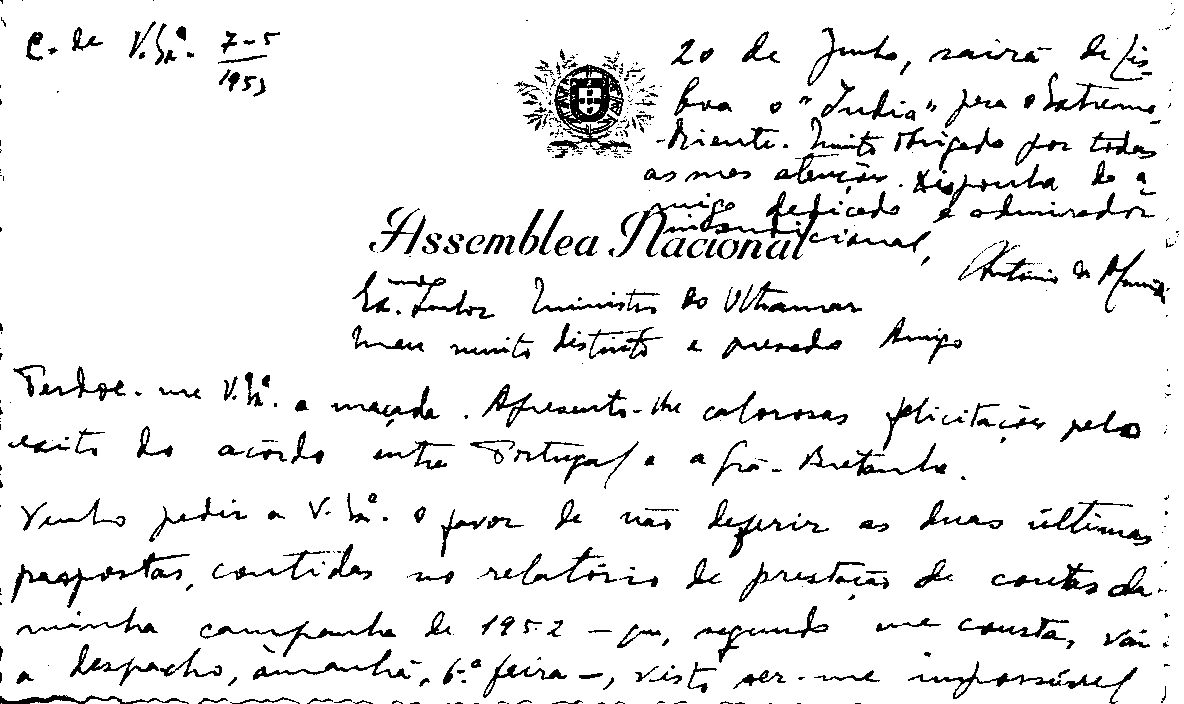 C. de V. Exª. 7-5
1953
20 de Junho, sairá de Lis-
boa o "India" para o Extremo-
Oriente. Muito obrigado por todas
as suas atenções. Disponha do a-
migo dedicado e admirador
incondicional,
António de Almeida
Assemblea Nacional
Exmo. Senhor Ministro do Ultramar
Meu muito distinto e presado Amigo
Perdoe-me V. Exª. a maçada. Apresento-lhe calorosas felicitações pelo
exito do acôrdo entre Portugal e a Grã-Bretanha.
Venho pedir a V. Exª. o favor de não deferir as duas últimas
propostas, contidas no relatório de prestação de contas da
minha campanha de 1952 - que, segundo me consta, vai
a despacho, àmanhã, 6.ª feira -, visto ser-me impossível